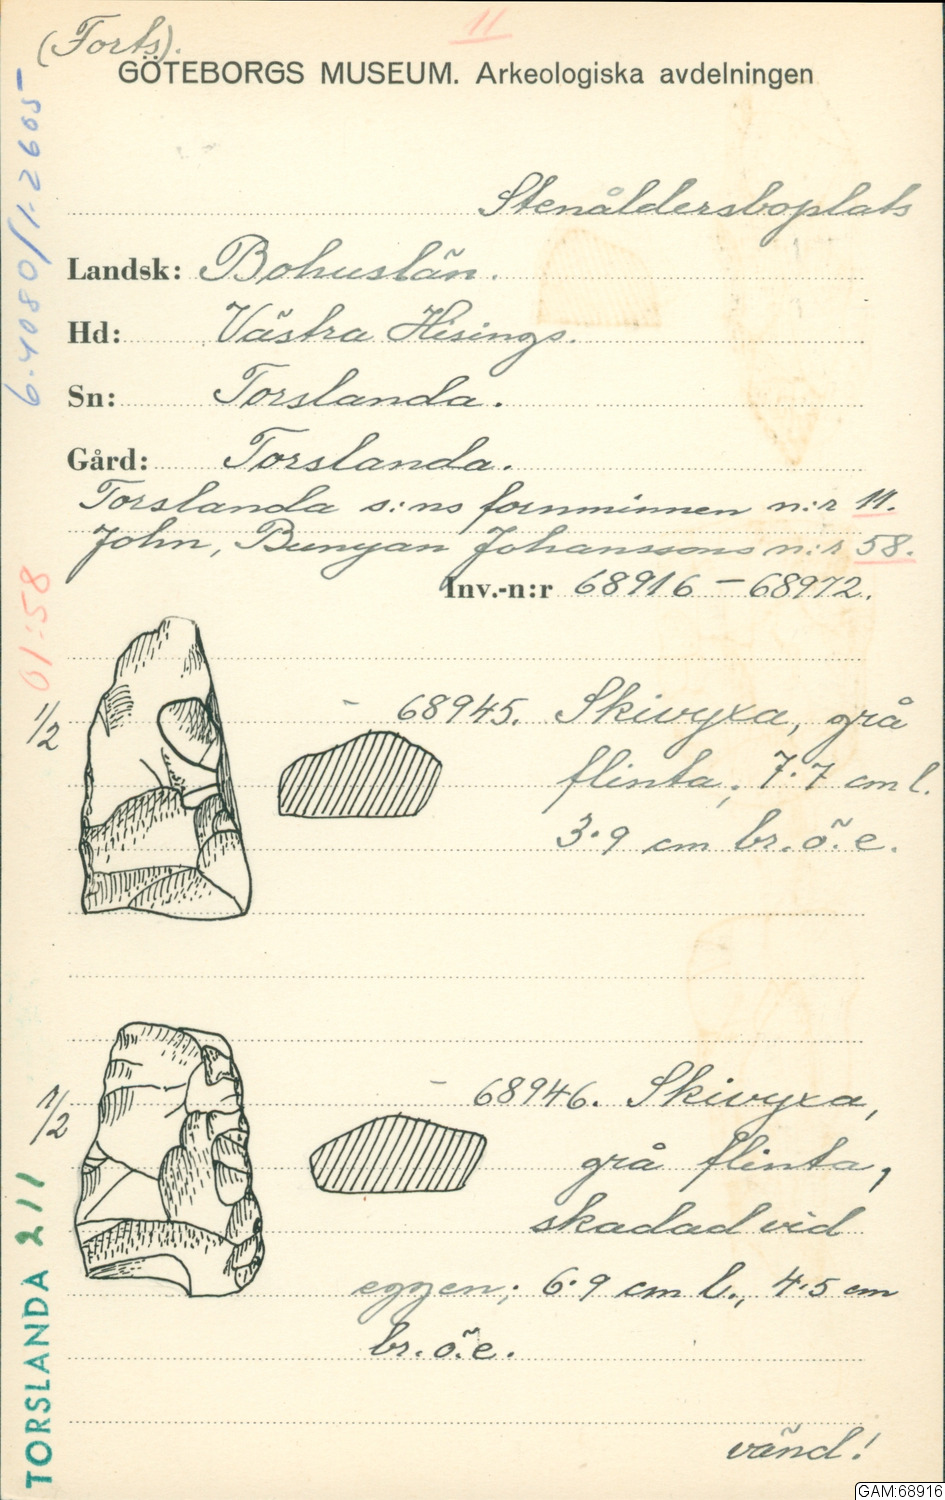 (Forts).
11
GÖTEBORGS MUSEUM. Arkeologiska avdelningen
Stenåldersboplats
Landsk: Bohuslän.
Hd: Västra Hisings.
Sn: Torslanda.
Gård: Torslanda.
Torslanda s:ns fornminnen n:r 11.
John, Bunyan Johanssons n:r 58.
Inv.-n:r 68916 – 68972.
01:58
1/2
– 68945. Skivyxa, grå
flinta; 7.7 cm l.
3.9 cm br. ö. e.
1/2
– 68946. Skivyxa,
grå flinta,
skadad vid
eggen; 6.9 cm l., 4.5 cm
br. ö. e.
vänd!
TORSLANDA 211
GAM:68916